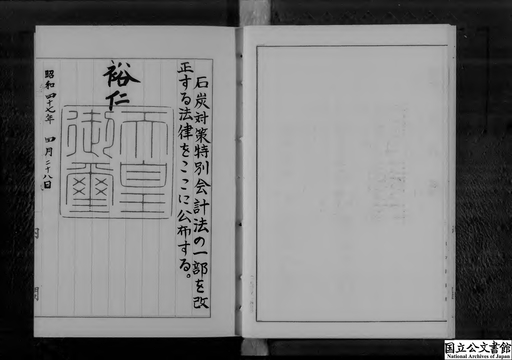 石炭対策特別会計法の一部を改
正する法律をここに公布する。
裕仁
天皇
御璽
昭和四十七年 四月二十八日
内閣
国立公文書館
National Archives of Japan